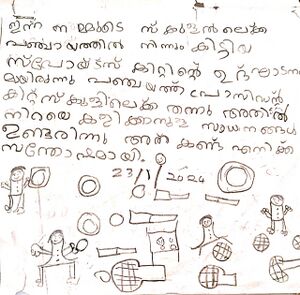 ഇന്ന് നമ്മുടെ സ്കൂളിലേക്ക്
പഞ്ചായത്തിൽ നിന്നും കിട്ടിയ
സ്പോർട്സ് കിറ്റിന്റെ ഉദ്ഘാടനം
മായിരുന്നു പഞ്ചയത്ത് പ്രസിഡൻ്റ്
കിറ്റ് സ്കൂളിലേക്ക് തന്നു അതിൽ
നിറയെ കളിക്കാനുള്ള സാധനങ്ങൾ
ഉണ്ടരിന്നു അത് കണ്ട് എനിക്ക്
സന്തോഷമായി.
23/1/2024